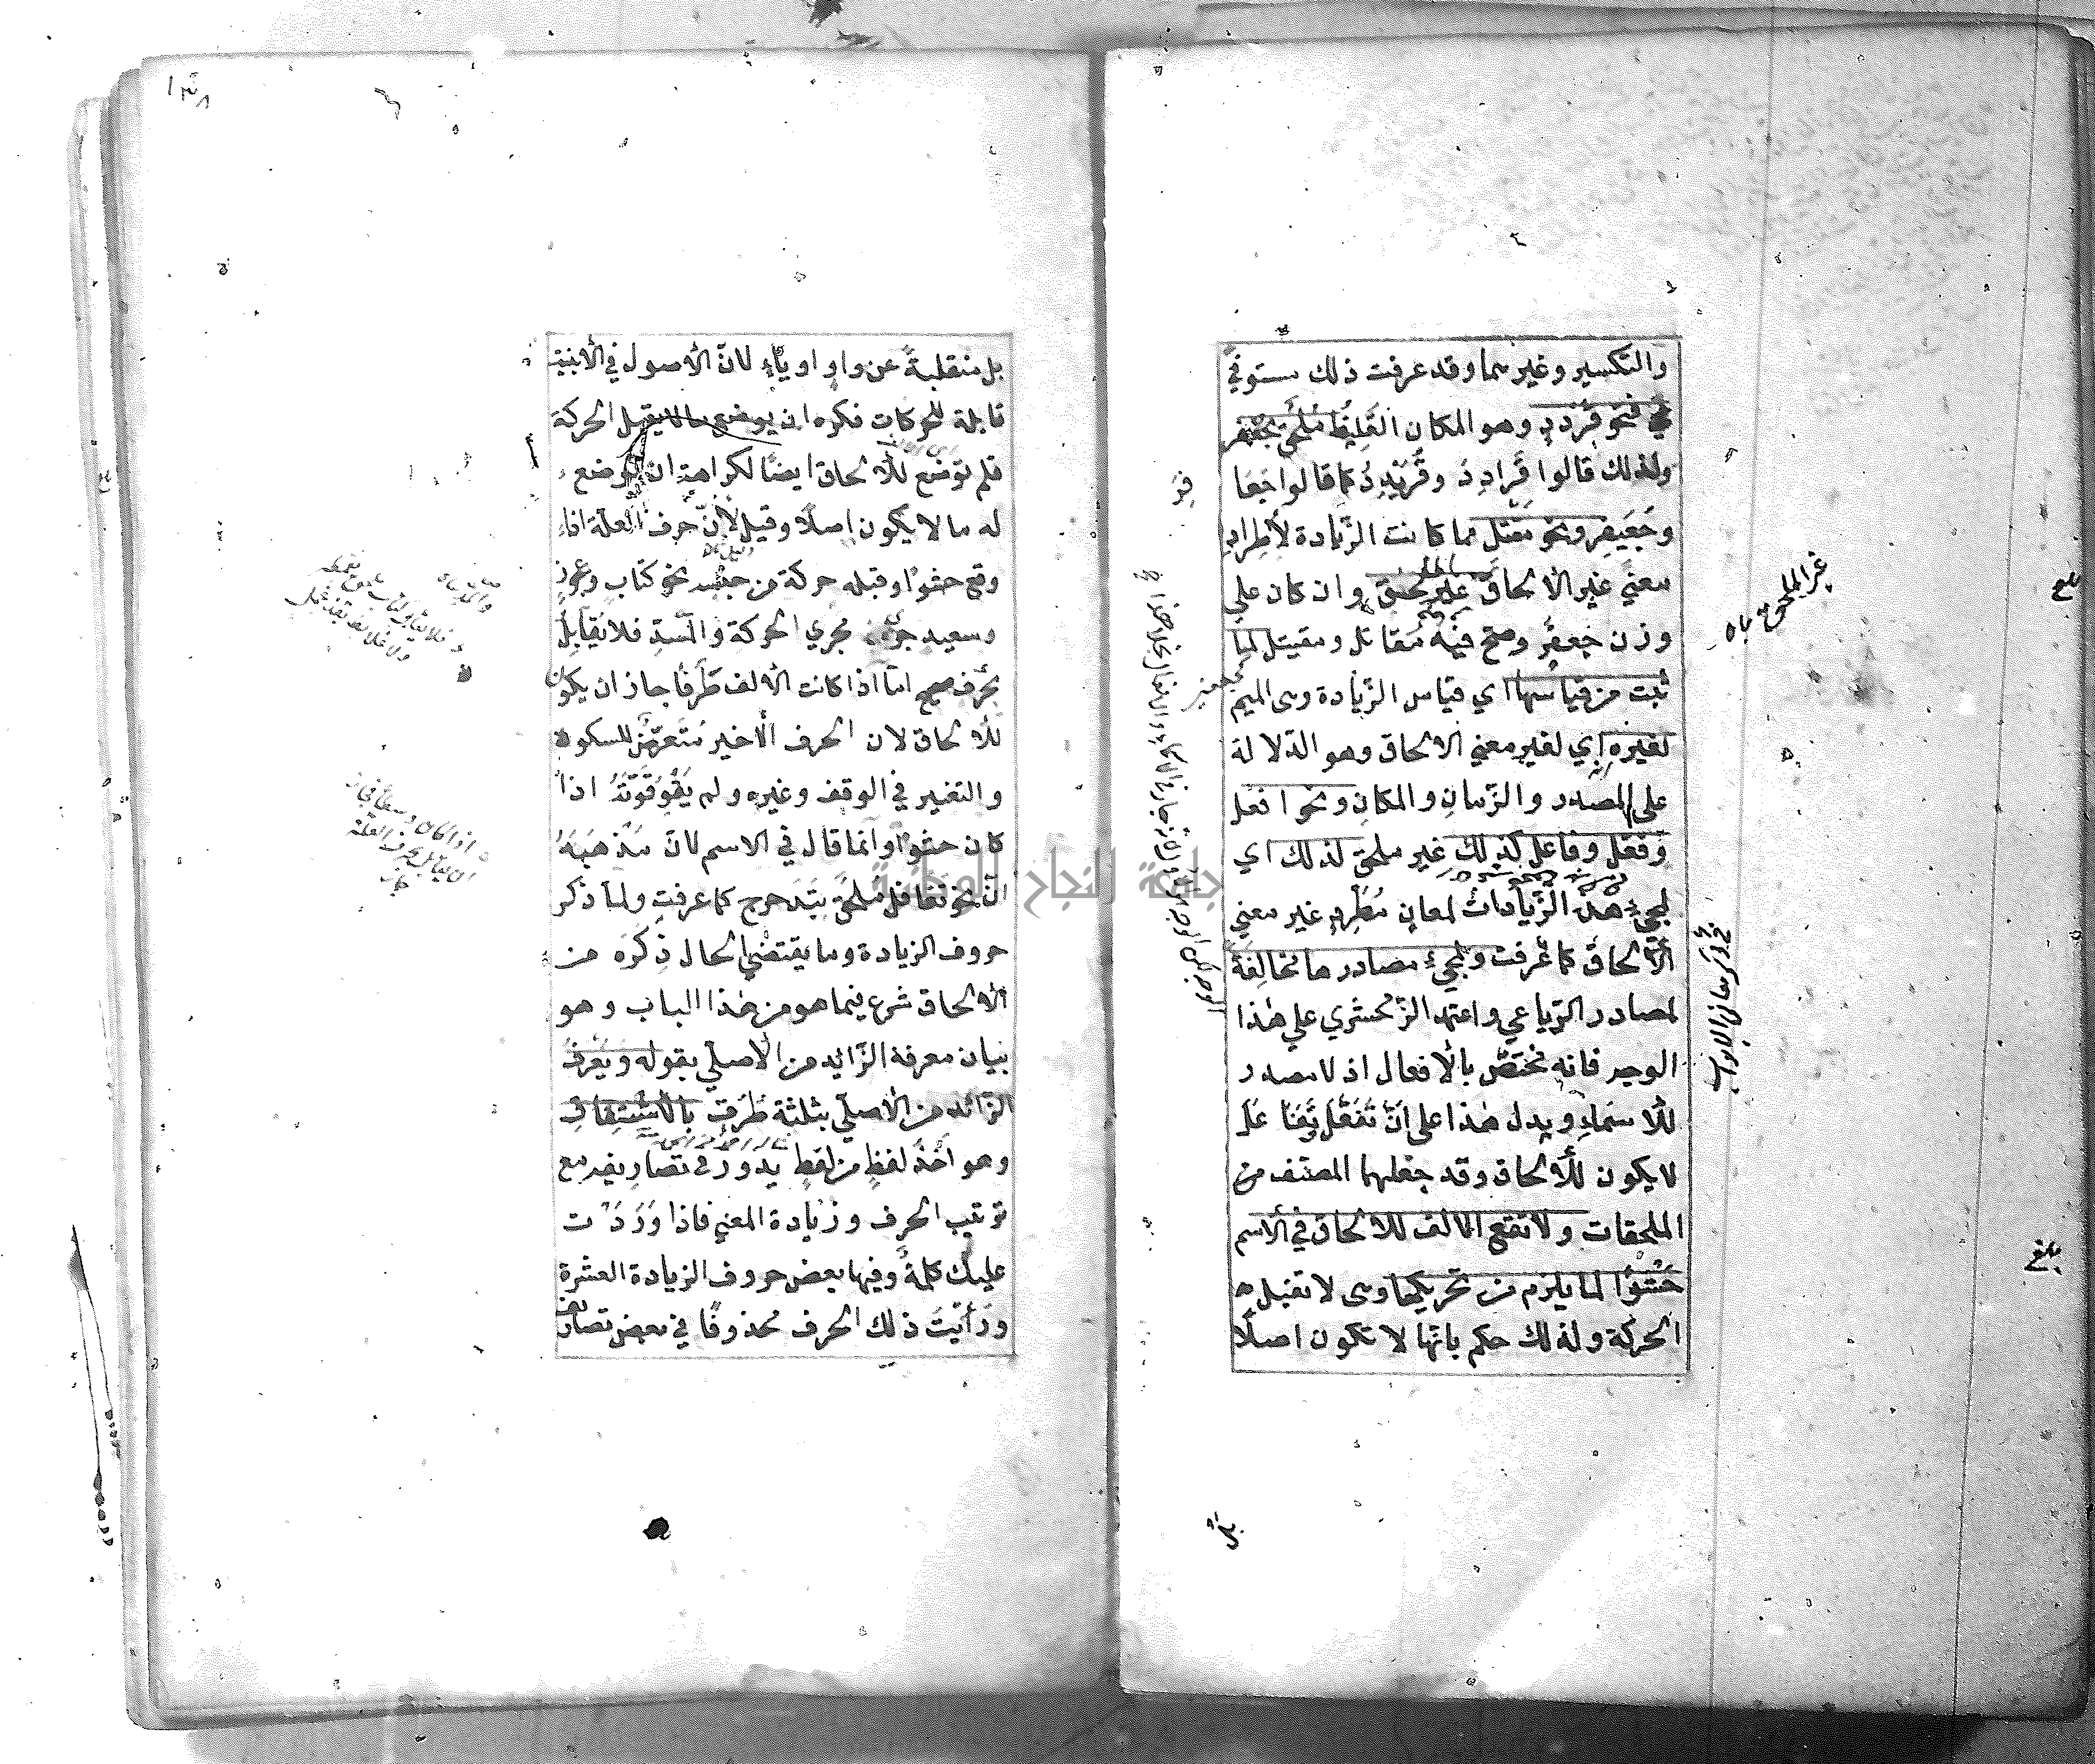 والتكسير وغيرهما وقد عرفت ذلك مستوفي
في نحو قردد وهو المكان الغليظ ملحق بجعفر
ولذلك قالوا قرادد وقريدد كما قالوا جعا
وجعيفر ونحو مقتل مما كانت الزيادة لاطراد
معني غير الالحاق غير ملحق وان كان علي
وزن جعفر وصح فيه مقاتل ومقيتل لما
ثبت من قياسها اي قياس الزيادة وهي الميم
لغيره اي لغير معني الالحاق وهو الدلالة
على المصدر والزمان والمكان ونحو افعل
وفعل وفاعل كذلك غير ملحق لذلك اي
لمجيء هذه الزيادات لمعان مطرد غير معني
الالحاق كما عرفت ولمجيء مصادرها مخالفة
لمصادر الرباعي واعتمد الزمخشري علي هذا
الوجه فانه مختص بالافعال اذ لا مصدر
للاسماء ويدل هذا على ان تفعل وتفاعل
لا يكون للالحاق وقد جعلهما المصنف من
الملحقات ولا تقع الالف للالحاق في الاسم
حشوا لما يلزم من تحريكها وهي لا تقبل
الحركة ولذلك حكم بانها لا تكون اصلا
غير الملحق
بلغ
بلغ
بل
بل منقلبة عن واو او ياء لان الاصول في الابنية
قابلة للحركات فكره ان يوضع ما لا يقبل الحركة
فلم توضع للالحاق ايضا لكراهة ان يوضع
له ما لا يكون اصلا وقيل لان حرف العلة اذا
وقع حشوا وقبله حركة من جنسه نحو كتاب وعجوز
وسعيد جرى مجري الحركة والمدة فلا يقابل
بحرف صحيح اما اذا كانت الالف طرفا جاز ان يكون
للالحاق لان الحرف الاخير متعرض للسكون
والتغيير في الوقف وغيره ولم يقو قوته اذا
كان حشوا وانما قال في الاسم لان مذهبه
ان نحو تغافل ملحق بتدحرج كما عرفت ولما ذكر
حروف الزيادة وما يقتضي الحال ذكره من
الالحاق شرع فيما هو من هذا الباب وهو
بيان معرفة الزائد من الاصلي بقوله ويعرف
الزائد من الاصلي بثلثة طرق بالاشتقاق
وهو اخذ لفظ من لفظ يدور في تصاريفه مع
ترتيب الحرف وزيادة المعني فاذا وردت
عليك كلمة وفيها بعض حروف الزيادة العشرة
ورأيت ذلك الحرف محذوفا في بعض تصاريف
جامعة النجاح الوطنية